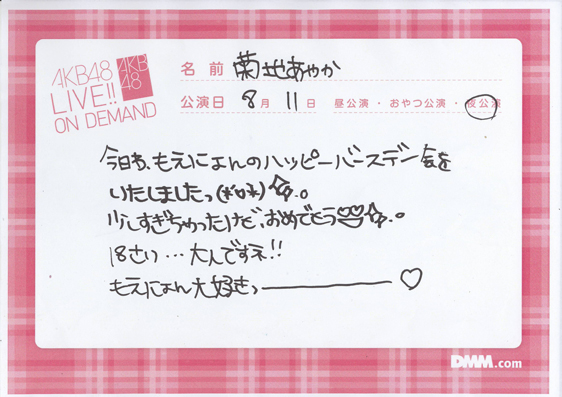 AKB48
LIVE!!
ON DEMAND
AKB
48
名前 菊地あやか
公演日 8月 11日 昼公演・おやつ公演・夜公演
今日わ、もえにょんのハッピーバースデー会を
いたしましたっ(*´o`*)☆。
少しすぎちゃったけど、おめでとう♡♡☆。
18さい…大人ですネ!!
もえにょん大好きっ――――♡
DMM.com